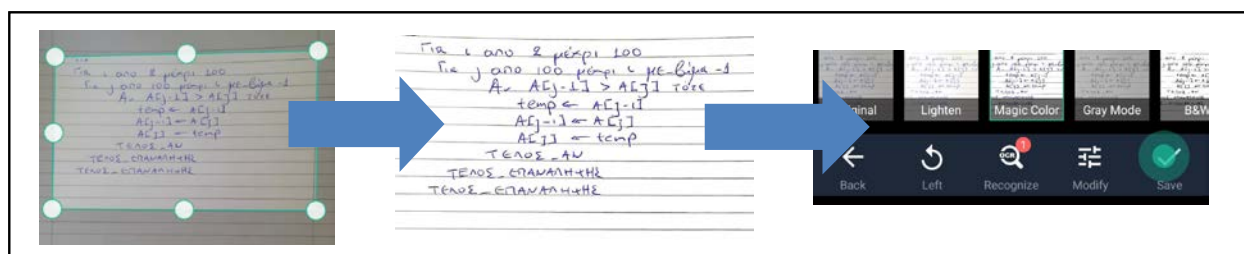 Για
Για ι απο 2 μέχρι 100
Για j απο 100 μέχρι ι με_βήμα -1
Αν A[j-1] > A[j] τότε
temp ← A[j-1]
A[j-1] ← A[j]
A[j] ← temp
ΤΕΛΟΣ_ΑΝ
ΤΕΛΟΣ_ΕΠΑΝΑΛΗΨΗΣ
ΤΕΛΟΣ_ΕΠΑΝΑΛΗΨΗΣ
Για ι απο 2 μέχρι 100
Για j απο 100 μέχρι ι με_βήμα -1
Αν A[j-1] > A[j] τότε
temp ← A[j-1]
A[j-1] ← A[j]
A[j] ← temp
ΤΕΛΟΣ_ΑΝ
ΤΕΛΟΣ_ΕΠΑΝΑΛΗΨΗΣ
ΤΕΛΟΣ_ΕΠΑΝΑΛΗΨΗΣ
ginal Lighten Magic Color Gray Mode B&W
OCR 1
Back Left Recognize Modify Save